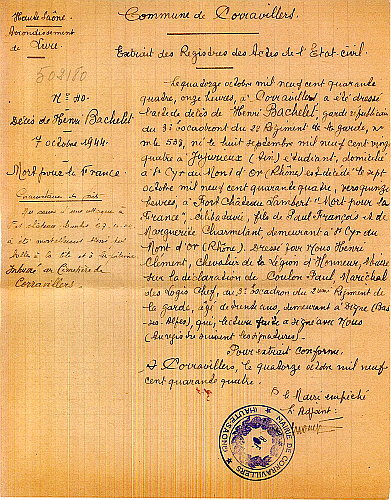 Haute Saône.
Arrondissement
de
Lure
Commune de Corravillers.
Extrait des Registres des Actes de l'Etat-civil.
302160
N° 40.
Décès de Henri Bachelet
7 octobre 1944.
Mort pour la France
Le quatorze octobre mil neuf cent quarante
quatre, onze heures, à Corravillers a été dressé
l'acte de décès de Henri Bachelet, garde républicain
du 3e escadron du 2e Régiment de la garde,
né le huit septembre mil neuf cent vingt
quatre à Jujurieux (Ain) étudiant, domicilié
à St Cyr au Mont d'Or (Rhône) est décédé le sept
octobre mil neuf cent quarante quatre, vers quinze
heures, à Fort Château Lambert "Mort pour la
France". Célibataire, fils de Paul François et de
Marguerite Charmelant, demeurant à St Cyr au
Mont d'Or (Rhône). Dressé par Nous Henri
Clement, Chevalier de la Légion d'Honneur,
sur la déclaration de Coulon Paul, Maréchal
des Logis Chef, du 3e Escadron du 2me Régiment de
la garde, âgé de trente ans, demeurant à Digne (Bas
ses Alpes), qui, lecture faite a signé avec Nous
(Au registre suivent les signatures).
Pour extrait conforme.
A Corravillers, le quatorze octobre mil neuf
cent quarante quatre.
P. le Maire empêché
L'Adjoint.
au Cimetière de
CORRAVILLERS
MAIRIE DE CORRAVILLERS (HAUTE-SAÔNE)